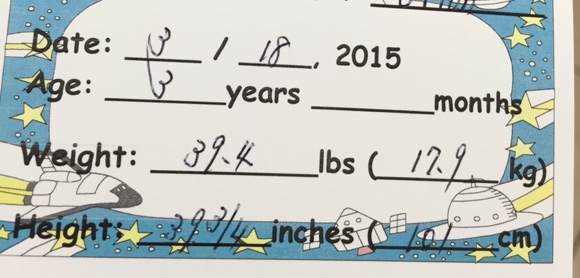 Date: 3 / 18, 2015
Age: 3 years months
Weight: 39.4 lbs (17.9 kg)
Height: 39 3/4 inches (101 cm)